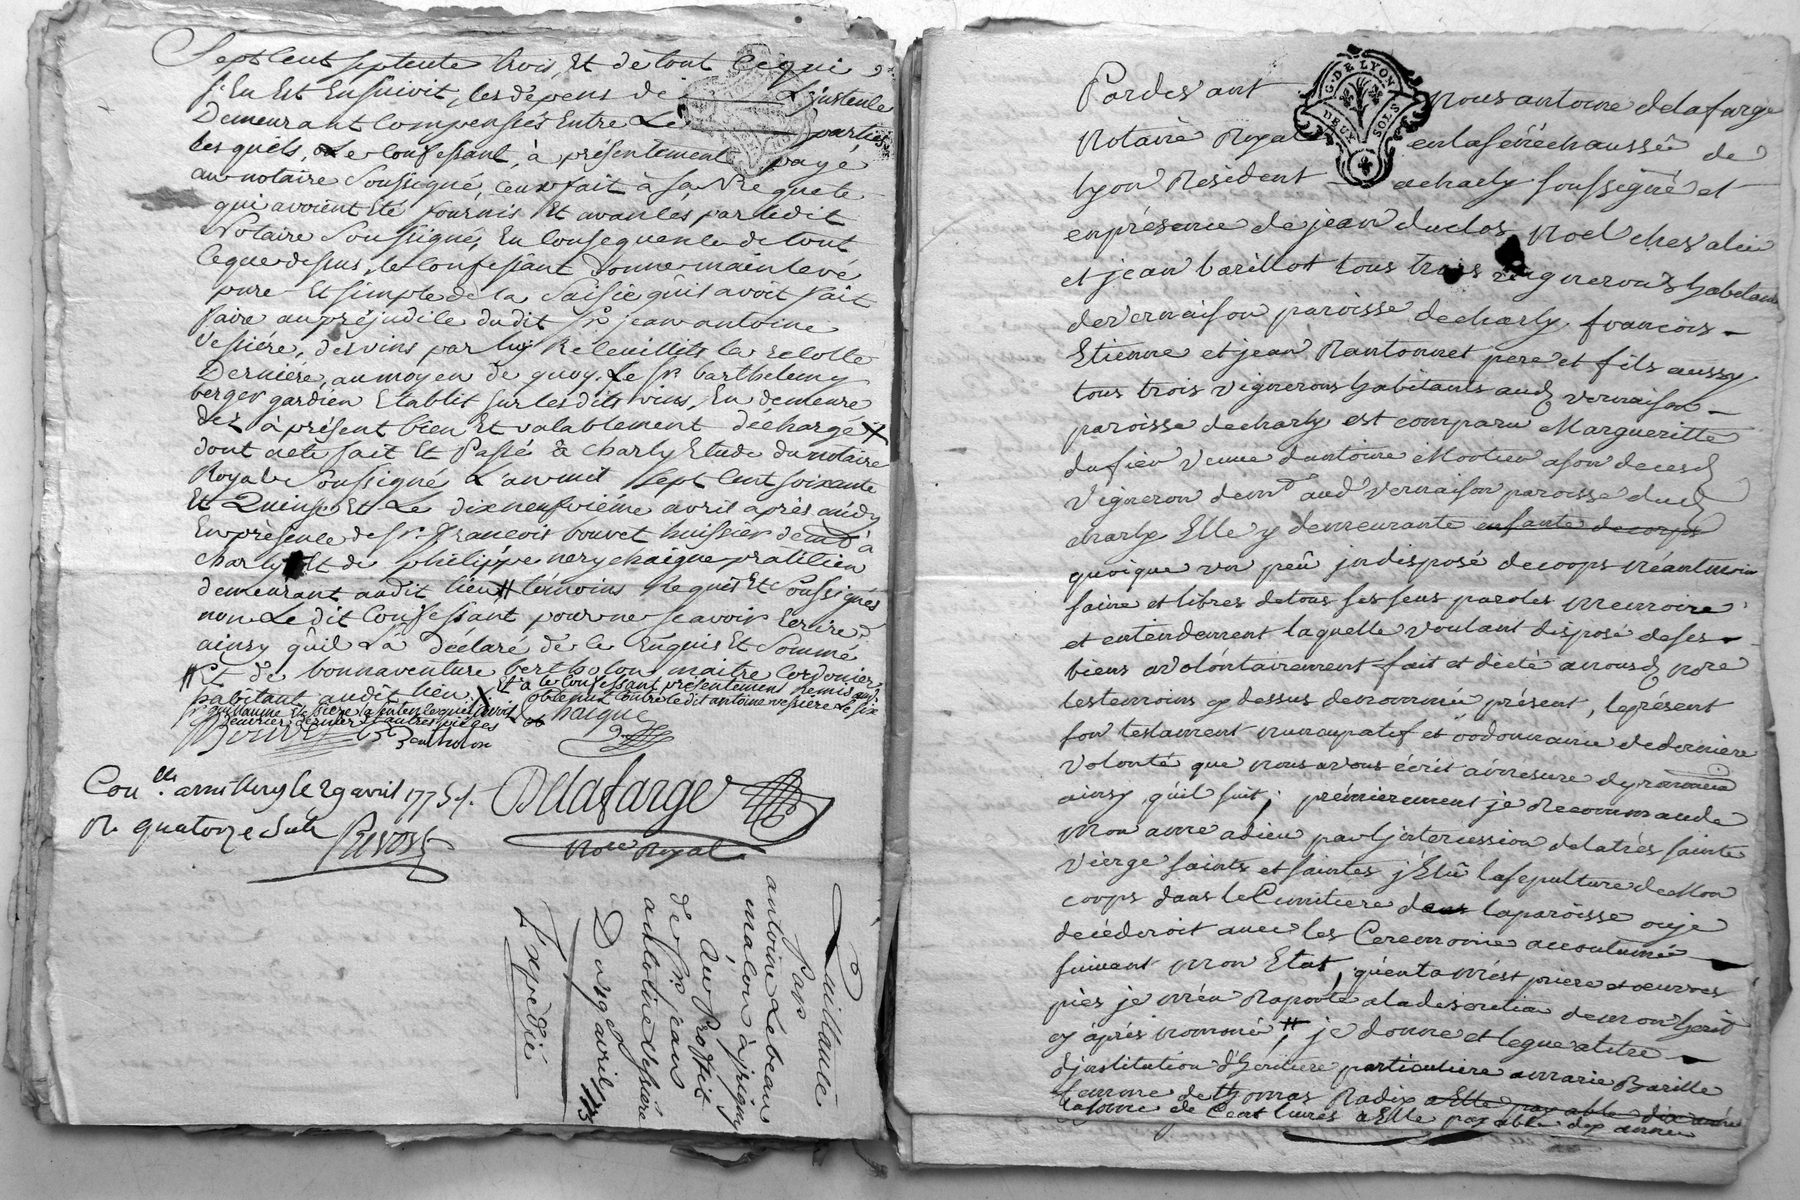 Sept Cent septente trois, Et de tout Ce qui
s'En Est Ensuivit, les dépens de L'instence
Demeurant Compensés Entre Le parties
les quels, Le Confessant, à présentement payé
au notaire Soussigné, ceux fait à sa Requete
qui avoient Eté fournis Et avancés par ledit
Notaire Soussigné, En Consequence de tout
Ceque dessus, le Confessant Donne mainlevé
pure Et simple de la Saisie qu'il avoit fait
faire au préjudice dudit Sr. jean antoine
Vessiére, des vins par luy Receuillits la recolte
Derniére, au moyen de quoy Le Sr. barthelemy
berger gardien Etablit sur les dits vins, En demeure
dez à présent bien Et valablement déchargé X
dont acte fait Et Passé à Charly Etude du notaire
Royal Soussigné L'an mil Sept Cent soixante
Et Quinze Et Le dixneufviéme avril après midy
En présence de Sr. francois bouvet huissier demt. à
Charly Et de philippe nery chaigne praticien
demeurant audit lieu # témoins Requis Et Soussignés
non Le dit Confessant pour ne scavoir Ecrire
ainsy qu'il L'a déclaré de ce Enquis Et Sommé
# Et de bonnaventure bertholon maitre Cordonier
habitant audit lieu X Et a le Confessant présentement remis
obtenüe contre ledit antoine vessiere le six
fevrier dernier Et autres pièces
Bouvet Bertholon Chaigne
Con.lle a millery le 29 avril 1775 f.
R. quatorze sols Prevost
Delafarge
No.re Royal
Quittance
Par
antoine Labeaume
maçon à jrigny
Au Proffit
de Sr. jean
antoine Vessiére
Du 19 avril 1775
Expédiée
Pardevant Nous antoine delafarge
G. DE LYON
DEUX SOLS
Notaire Royal en la sénéchaussée de
Lyon Résident a charly soussigné et
en présence de jean duclos, Noel chevalier
et jean barillot tous trois vignerons habitants
de vernaison paroisse de charly, francois
Etienne et jean Rantonnet pere et fils aussy
tous trois vignerons habitants aud vernaison
paroisse de charly est comparu Margueritte
dufieu veuve d'antoine Mortier a son deces
vigneron demt. aud vernaison paroisse dud
charly Elle y demeurante enfante de corps
quoique un peû jndisposé de corps Néantmoin
saine et libres de tous ses sens paroles memoire
et entendement laquelle voulant disposé de ses
biens a volontairement fait et dicté a nousd nore
les temoins cy dessus denommé présent, le présent
son testament nuncupatif et ordonnance de derniere
volonté que nous avons écrit a mesure
ainsy qu'il suit; prémierement je Recommande
mon ame a dieu par l'jntercession de la trés sainte
viérge saints et saintes j'Elû la sepulture de Mon
corps dans le Cimitiere de la paroisse ou je
décéderoit avec les Ceremonie accoutumé
suivant mon Etat, quenta Mést priere et oeuvres
pies je m'én Raporte a la discretion de mon herit
cy aprés nommé # je donne et legue a titre
d'jnstitution d'heritiere particuliere a marie Barille
femme de thomas Radix a Elle payable dix
la somme de Cent livres a Elle payable dix année